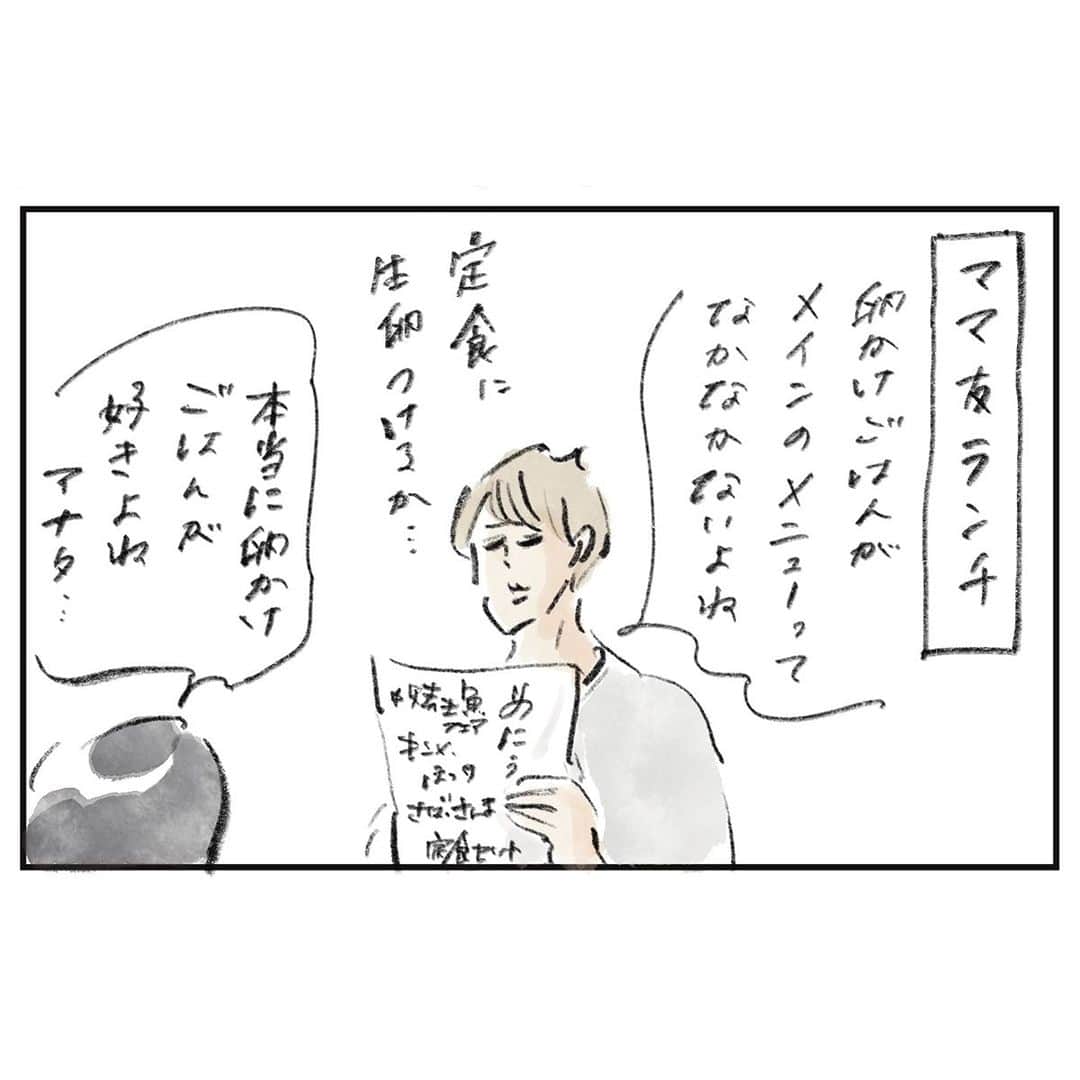 ママ友ランチ
卵かけごはんが
メインのメニューって
なかなかないよね
定食に
生卵つけるか…
本当に卵かけ
ごはんが
好きよね
アナタ…
めにう
焼魚
フェア
キンメ、
ほっけ
さば、さんま
定食セット